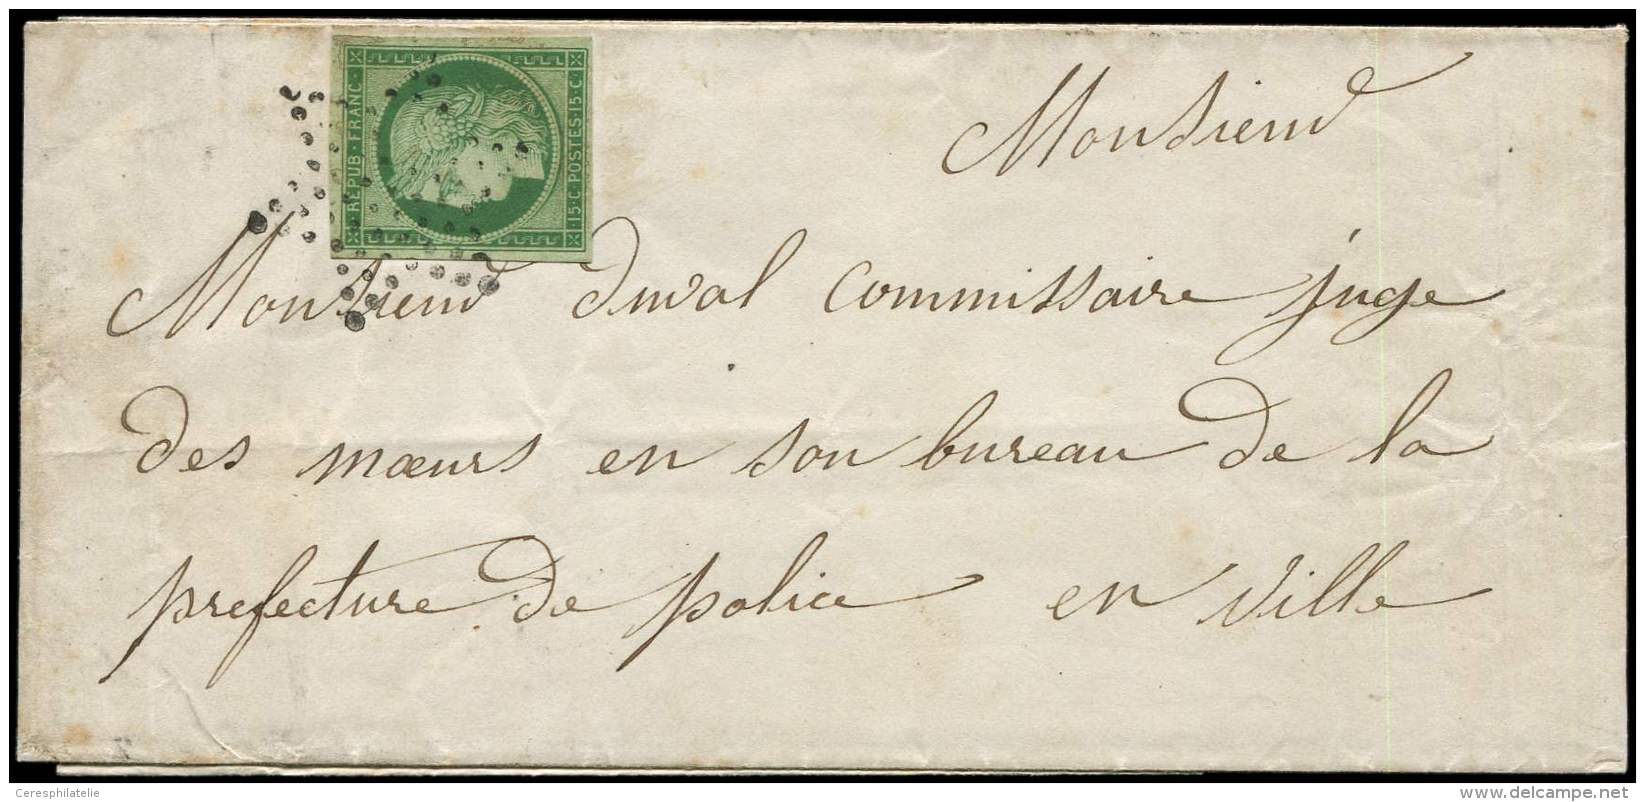 REPUB·FRANC·
·15·C·POSTES·15·C·
Monsieur
Monsieur duval commissaire juge
des mœurs en son bureau de la
prefecture de police en ville
Ceresphilatelie
www.delcampe.net